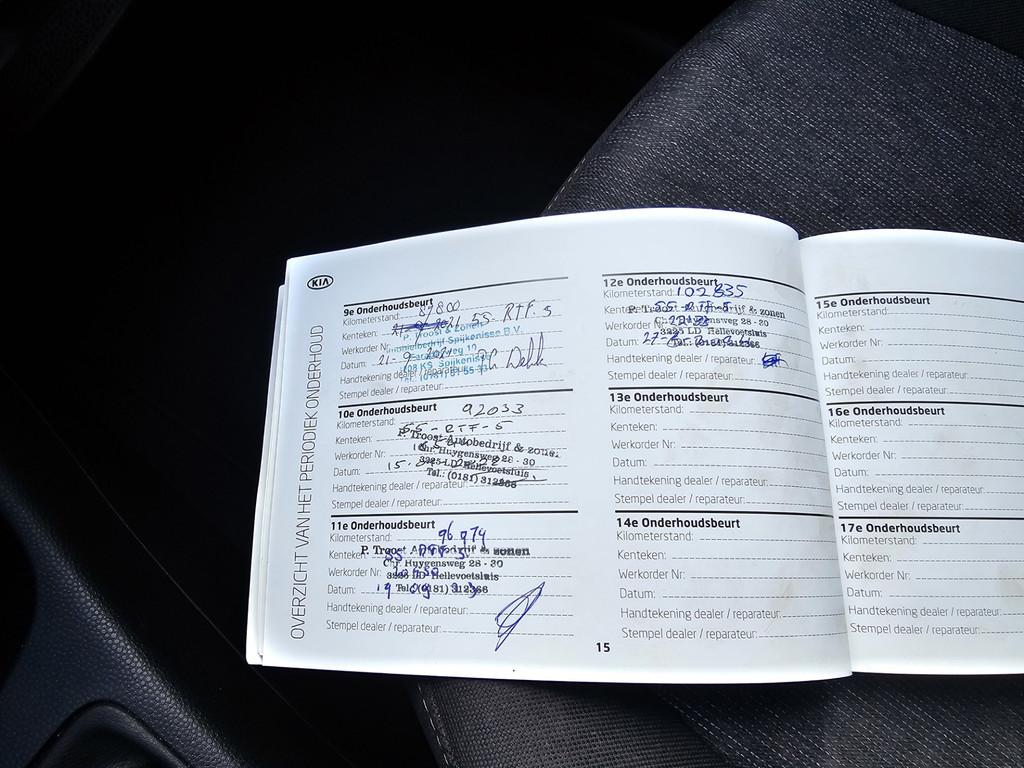 KIA
OVERZICHT VAN HET PERIODIEK ONDERHOUD
9e Onderhoudsbeurt
Kilometerstand: 87800
Kenteken: 55-RTF-5
Werkorder Nr:
Datum: 21-9-2021
Handtekening dealer / reparateur:
Stempel dealer / reparateur:
P. Troost & zonen
Spijkenisse B.V.
KS Spijkenisse
10e Onderhoudsbeurt
Kilometerstand: 92033
Kenteken: 55-RTF-5
Werkorder Nr:
Datum: 15
Handtekening dealer / reparateur:
Stempel dealer / reparateur:
P. Troost Autobedrijf & zonen
Chr. Huygensweg 28 - 30
3225 LD Hellevoetsluis
Tel.: (0181) 312366
11e Onderhoudsbeurt
Kilometerstand: 96 974
Kenteken:
Werkorder Nr:
Datum: 19 09
Handtekening dealer / reparateur:
Stempel dealer / reparateur:
P. Troost Autobedrijf & zonen
Chr. Huygensweg 28 - 30
3225 LD Hellevoetsluis
Tel.: (0181) 312366
12e Onderhoudsbeurt
Kilometerstand: 102835
Kenteken: 55-RTF-5
Werkorder Nr:
Datum: 27
Handtekening dealer / reparateur:
Stempel dealer / reparateur:
P. Troost Autobedrijf & zonen
Chr. Huygensweg 28 - 30
3225 LD Hellevoetsluis
Tel.: (0181) 312366
13e Onderhoudsbeurt
Kilometerstand:
Kenteken:
Werkorder Nr:
Datum:
Handtekening dealer / reparateur:
Stempel dealer / reparateur:
14e Onderhoudsbeurt
Kilometerstand:
Kenteken:
Werkorder Nr:
Datum:
Handtekening dealer / reparateur:
Stempel dealer / reparateur:
15
15e Onderhoudsbeurt
Kilometerstand:
Kenteken:
Werkorder Nr:
Datum:
Handtekening dealer / reparateur:
Stempel dealer / reparateur:
16e Onderhoudsbeurt
Kilometerstand:
Kenteken:
Werkorder Nr:
Datum:
Handtekening dealer / reparateur:
Stempel dealer / reparateur:
17e Onderhoudsbeurt
Kilometerstand:
Kenteken:
Werkorder Nr:
Datum:
Handtekening dealer / reparateur:
Stempel dealer / reparateur: